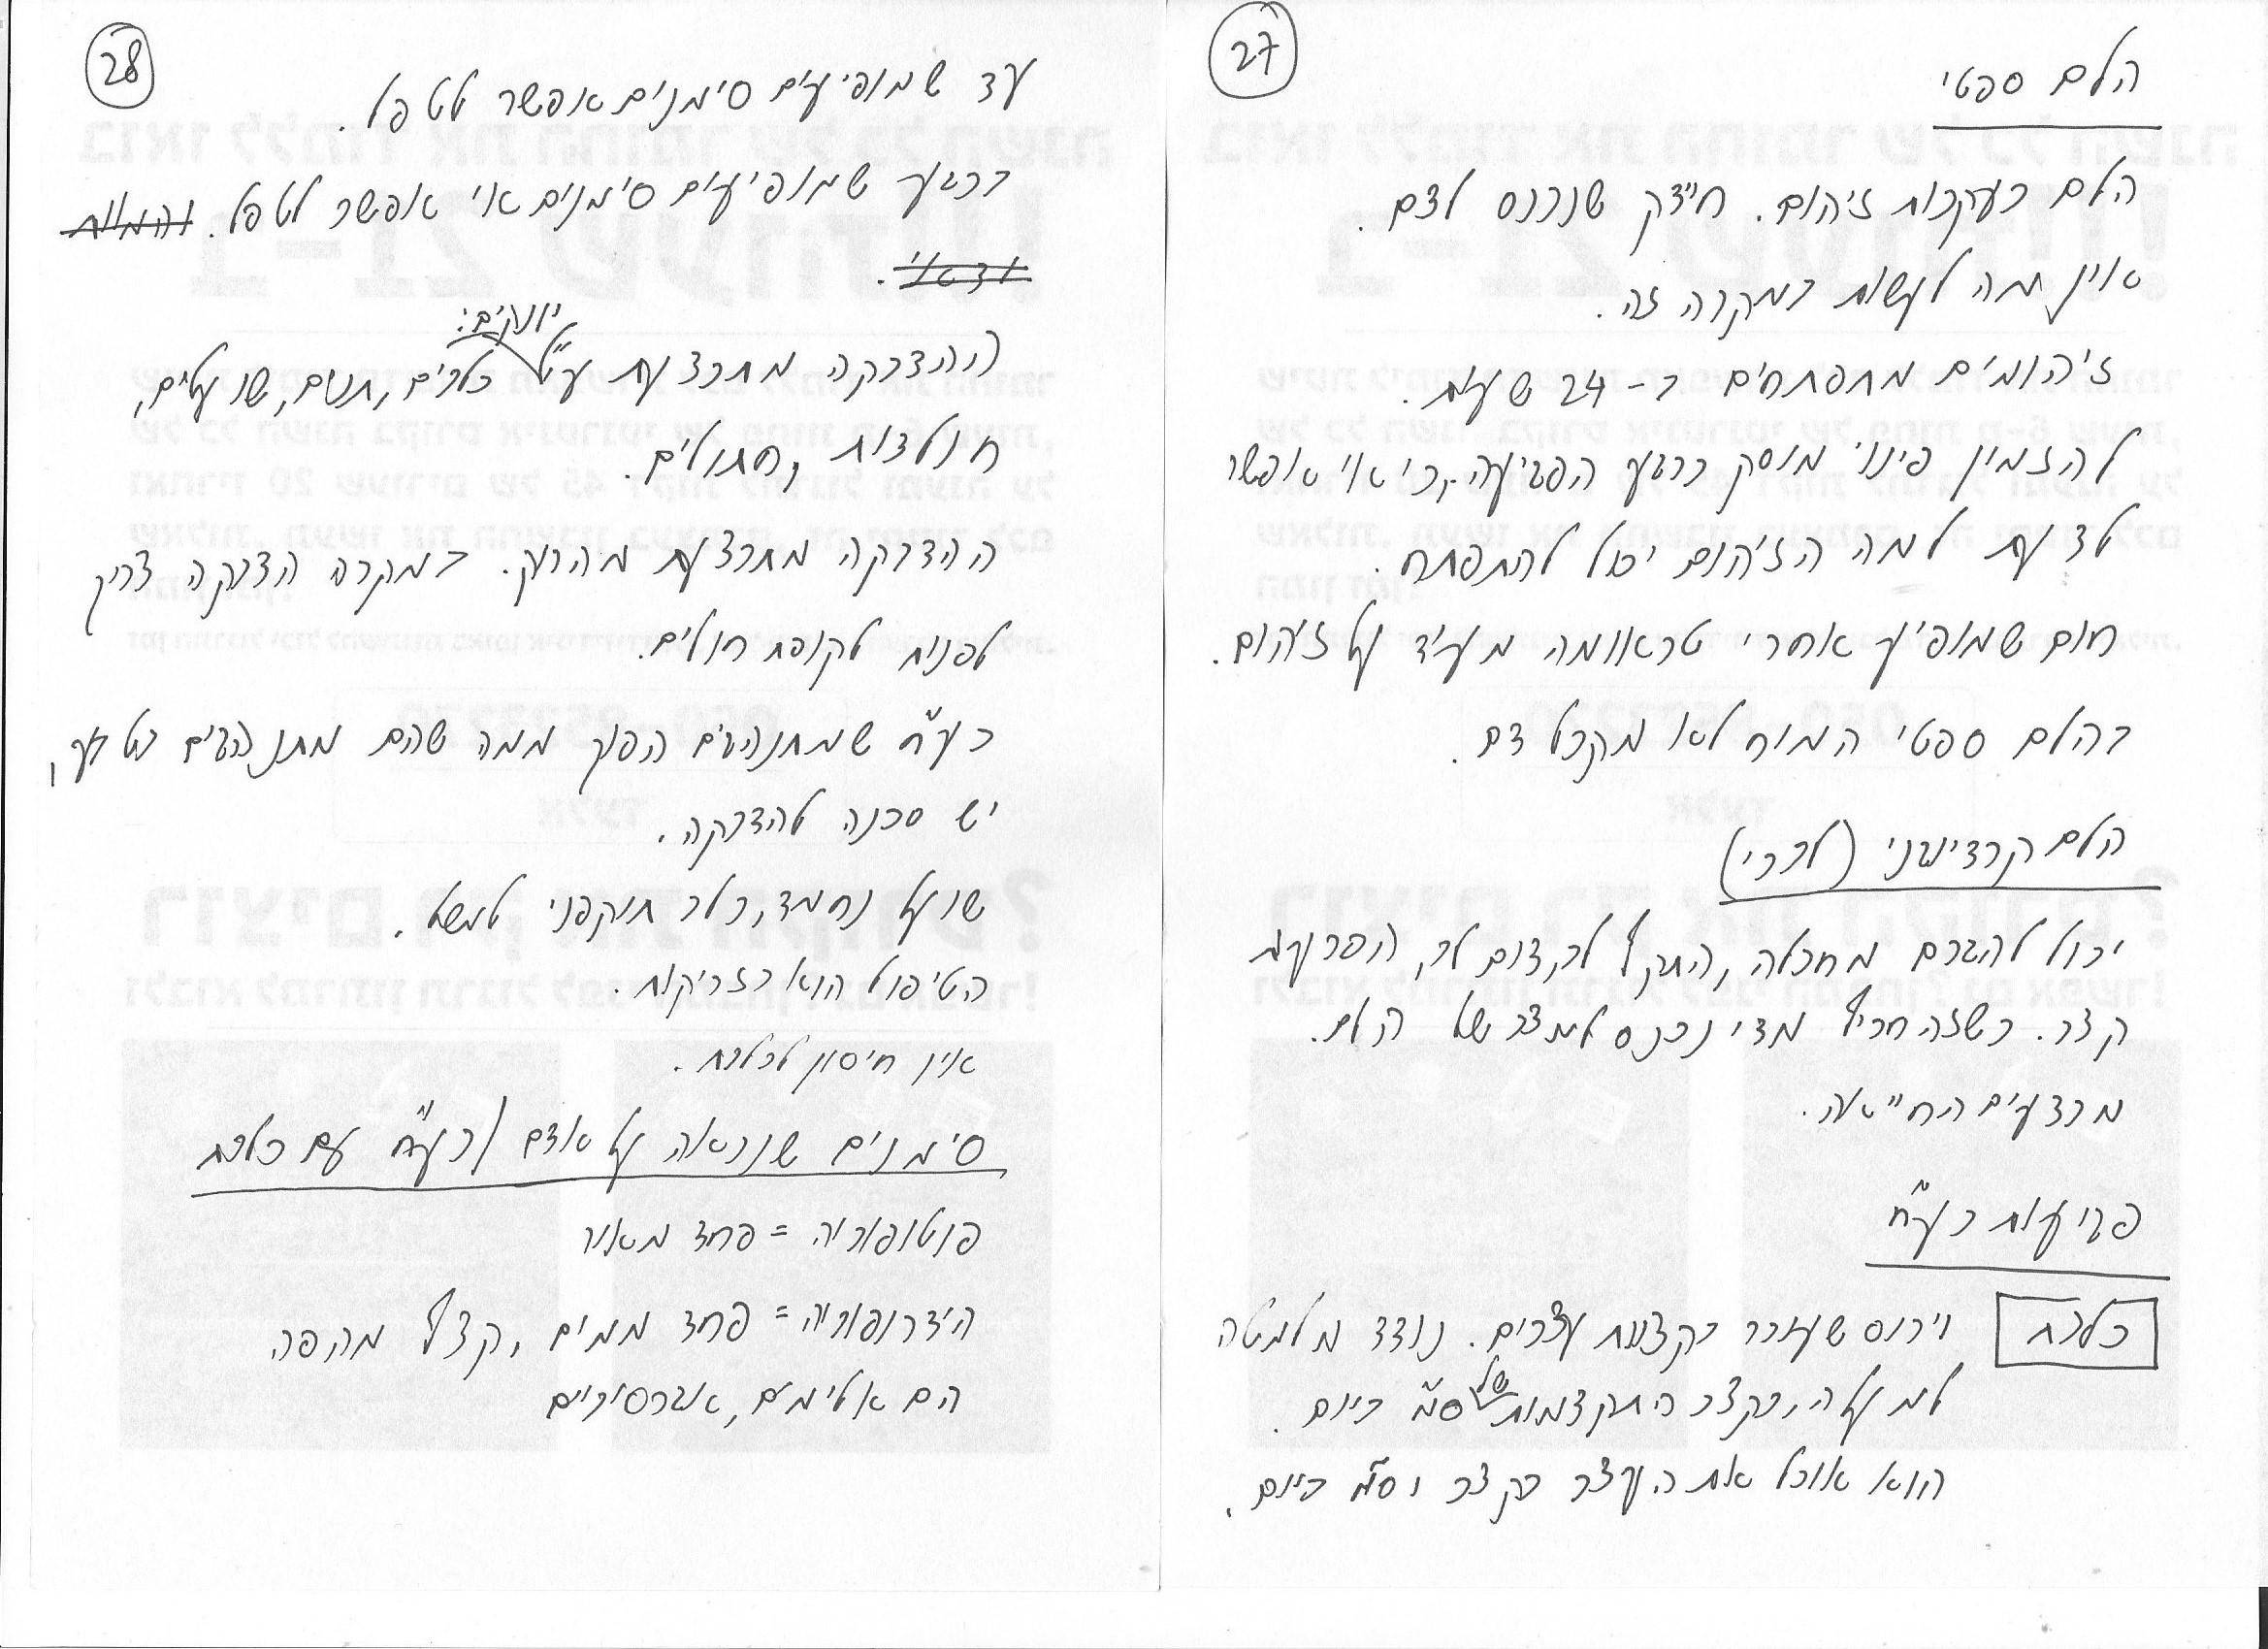 27
הלם ספטי
הלם בעקבות זיהום. חיידק שנכנס לדם.
אין מה לעשות במקרה זה.
זיהומים מתפתחים ב- 24 שעות.
להזמין פינוי מוסק ברגע הפגיעה, כי אי אפשר
לדעת למה הזיהום יכול להתפתח.
חום שמופיע אחרי טראומה מעיד על זיהום.
בהלם ספטי המוח לא מקבל דם.
הלם קרדיוגני (לבבי)
יכול להגרם מחבלה, התקף לב, דום לב, הפרעות
קצב. כשזה חריף מדי נכנס למצב של הלם.
מבצעים החייאה.
פגיעות בע״ח
כלבת וירוס שעובר בקצוות עצבים. נודד מלמטה
למעלה, בקצב התקדמות של סמ ביום.
הוא אוכל את העצב בקצב סמ ביום.
28
עד שמופיעים סימנים אפשר לטפל.
ברגע שמופיעים סימנים אי אפשר לטפל. והמוות
ודאי.
ההדבקה מתבצעת ע״י יונקים: כלבים, תנים, שועלים,
חולדות, חתולים.
ההדבקה מתבצעת מהרוק. במקרה הדבקה צריך
לפנות לקופת חולים.
בע״ח שמתנהגים הפוך ממה שהם מתנהגים בטבע,
יש סכנה להדבקה.
שועל נחמד, כלב תוקפני למשל.
הטיפול הוא בזריקות.
אין חיסון לכלבת.
סימנים שנראה על אדם / בע״ח עם כלבת
פוטופוביה = פחד מאור
הידרופוביה = פחד ממים, קצף מהפה
הם אלימים, אגרסיביים